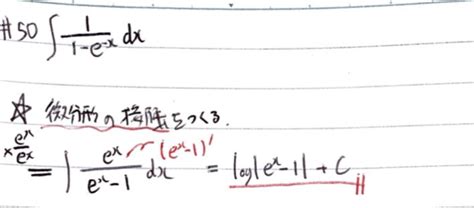 #50 ∫ 1/(1-e^{-x}) dx
☆ 微分形の接触をつくる.
×e^x/e^x = ∫ e^x/(e^x-1) dx (e^x-1)' = log|e^x-1| + C